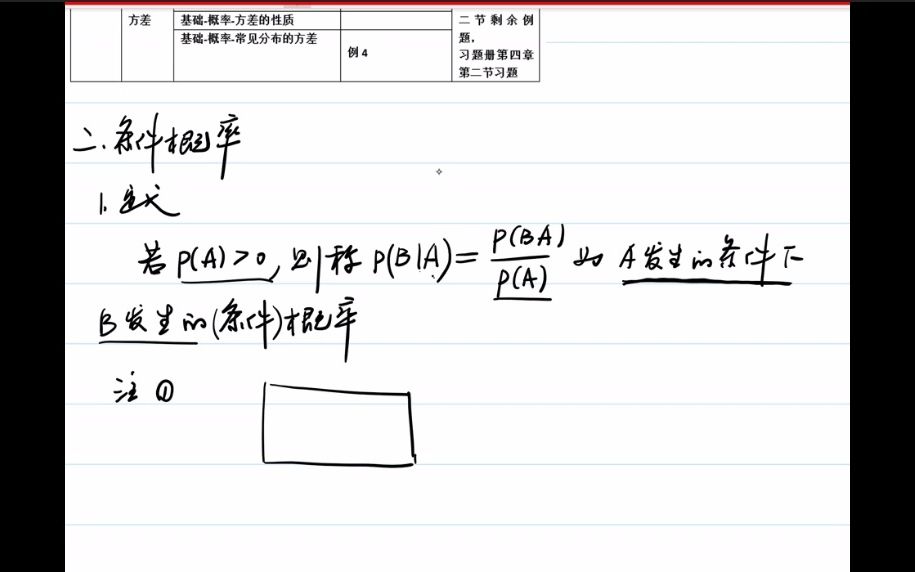 方差
基础-概率-方差的性质
基础-概率-常见分布的方差
例 4
二节剩余例
题,
习题册第四章
第二节习题
二.条件概率
1.定义
若P(A)>0,则称P(B|A)=P(BA)/P(A)为A发生的条件下
B发生的(条件)概率
注①